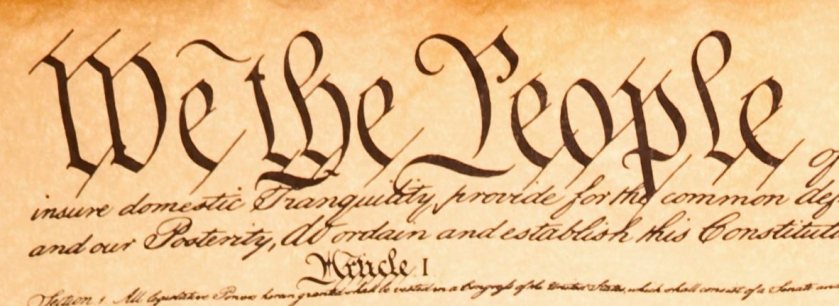 We the People of
insure domestic Tranquility, provide for the common def
and our Posterity, do ordain and establish this Constituti
Article I
Section 1. All legislative Powers herein granted shall be vested in a Congress of the United States, which shall consist of a Senate an